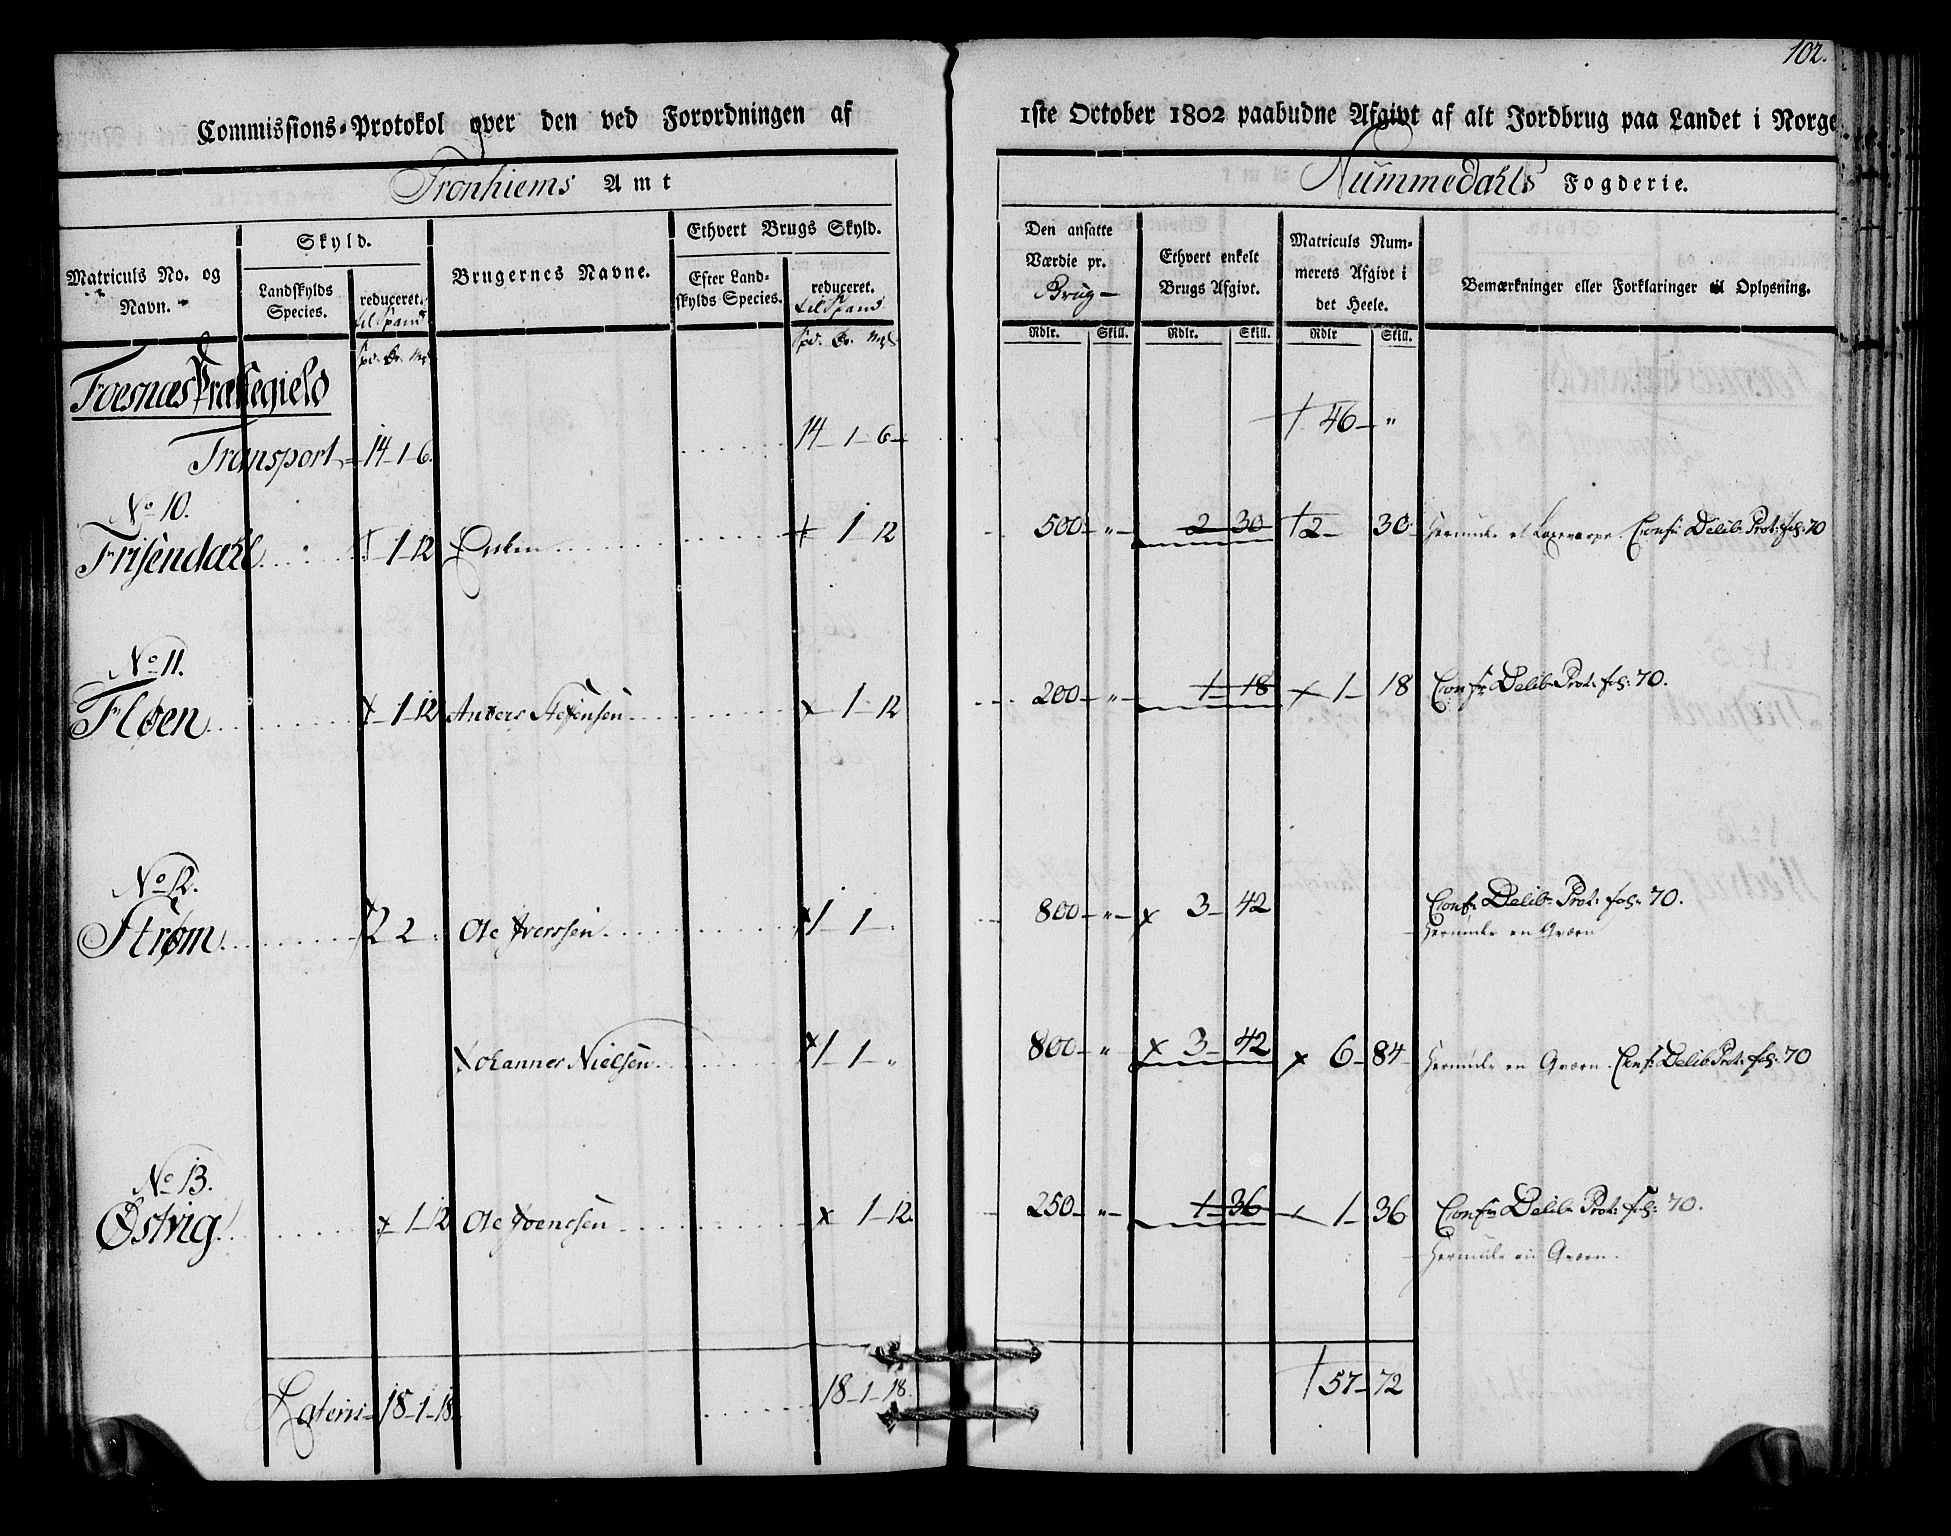 102.
Commissions-Protokol over den ved Forordningen af 1ste October 1802 paabudne Afgivt af alt Jordbrug paa Landet i Norge
Tronhiems Amt
Nummedahls Fogderie.
Matriculs No. og Navn.
Skyld.
Landskylds Species.
reduceret. til Spand
Brugernes Navne.
Ethvert Brugs Skyld.
Efter Landskylds Species.
reduceret. til Spand
Den ansatte Værdie pr. Brug
Ethvert enkelt Brugs Afgivt.
Matriculs Nummerets Afgivt i det Heele.
Bemærkninger eller Forklaringer til Oplysning.
Rdlr. Skill. Rdlr. Skill. Rdlr Skill.
Foesnæs Præstegield
Transport 14-1-6. 14-1-6 46 "
No 10.
Frisendahl 1 12 1 12 500 " 2 30 2 30 Confr Delib. Prot: fol: 70
No 11.
Floen 1 12 Anders Steensen 1-12 200 " 1 18 1 18 Confr Delib. Prot: fol: 70.
No 12.
Strøm 2 2 Ole Iverssen 1-1 800 " 3 42 Confr Delib. Prot: fol: 70.
Herunder en Qværn
Johannes Nielsen 1-1 " 800 " 3 42 6 84 Herunder en Qværn. Confr Delib. Prot: fol: 70
No 13.
Østvig 1 12 Ole Joenssen 1-12 250 " 1 36 1 36 Confr Delib. Prot: fol: 70.
Herunder en Qværn.
Lateris 18-1-18 18-1-18. 57-72